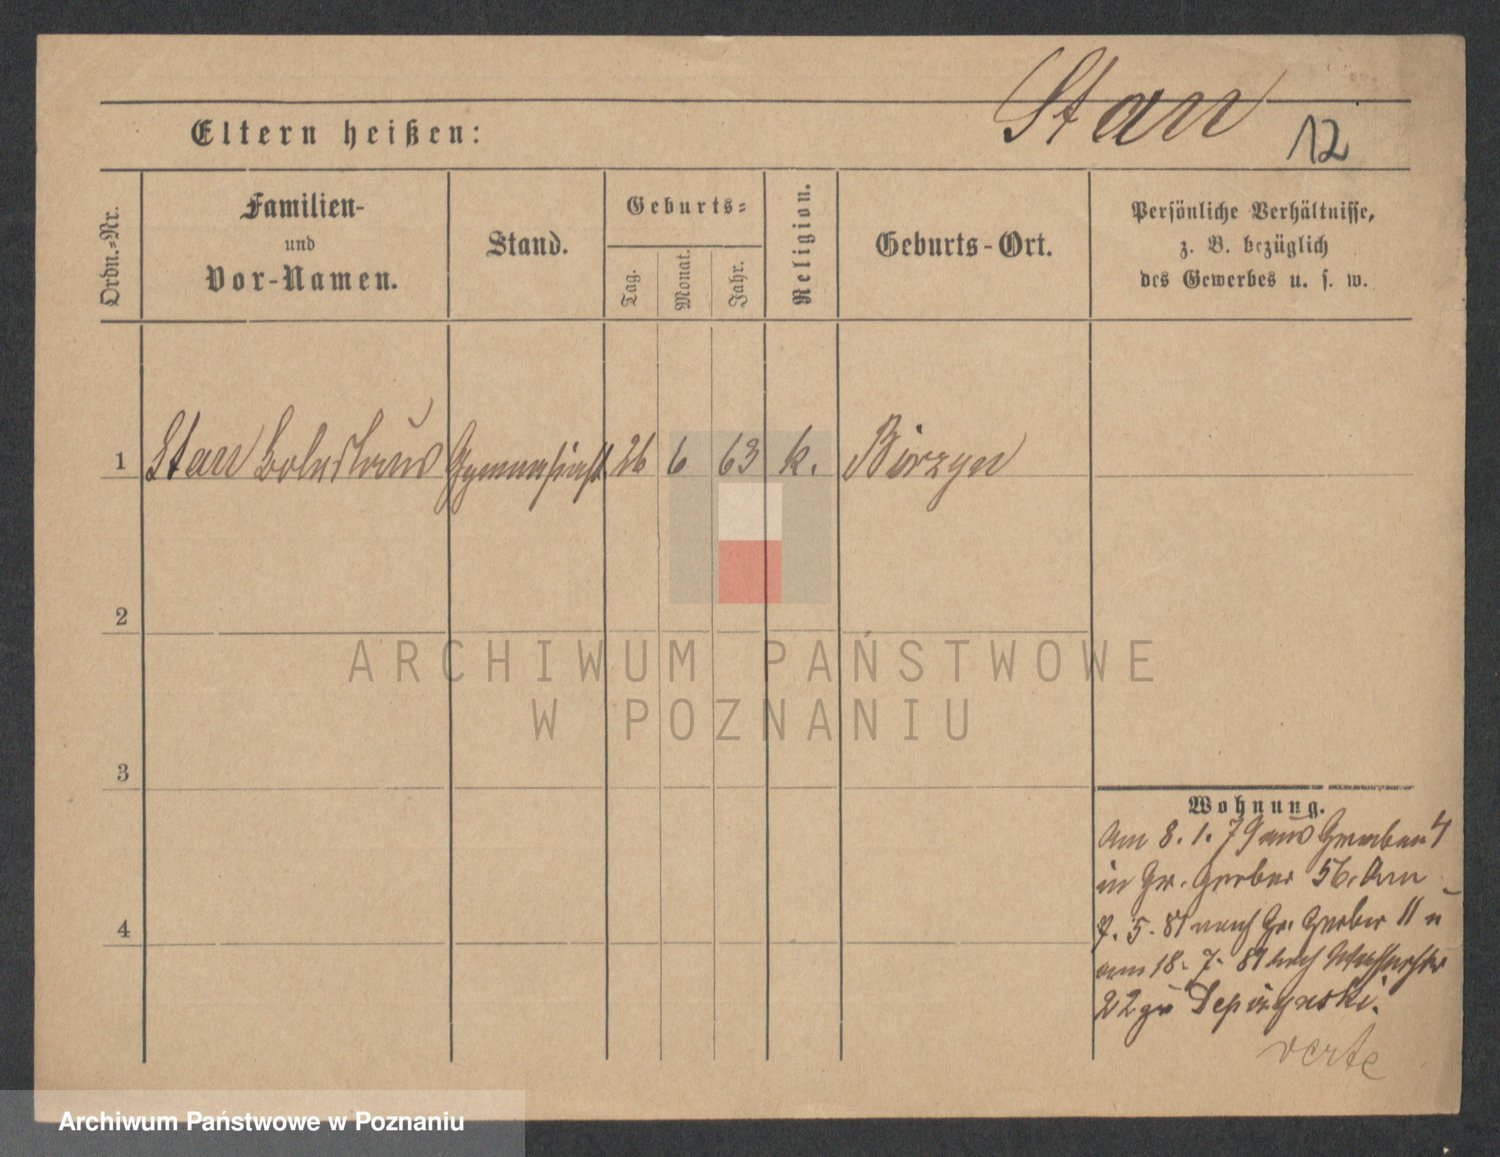 Stan
12
Eltern heißen:
Ordn.=Nr.
Familien-
und
Vor-Namen.
Stand.
Geburts=
Tag.
Monat.
Jahr.
Religion.
Geburts-Ort.
Persönliche Verhältnisse,
z. B. bezüglich
des Gewerbes u. s. w.
1 Stan Boleslaus Gymnasiast 26 6 63 k.
2
3
4
Wohnung.
Am 8. 1. 79 aus Graben 4
in Gr. Gerber 56. Am
7. 5. 81 nach Gr. Gerber 11 u
am 18. 7. 81 nach
22 zu
verte
ARCHIWUM PAŃSTWOWE
W POZNANIU
Archiwum Państwowe w Poznaniu